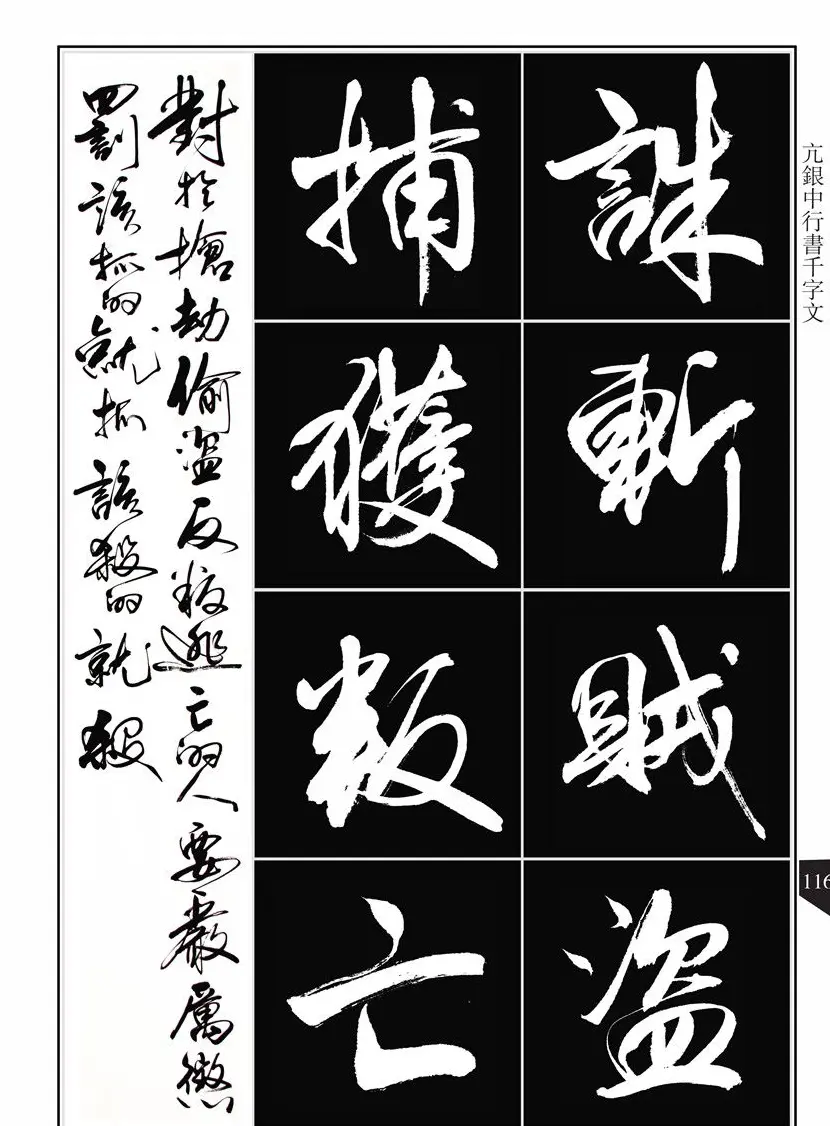 亢銀中行書千字文
誅斬賊盜
捕獲叛亡
對於搶劫偷盜反叛逃亡的人要嚴厲懲
罰該抓的就抓該殺的就殺
116